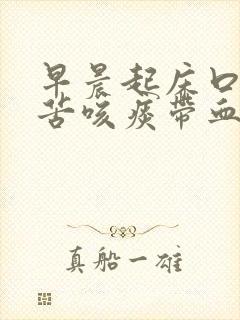 早晨起床口
苦咳痰带血
真船一雄